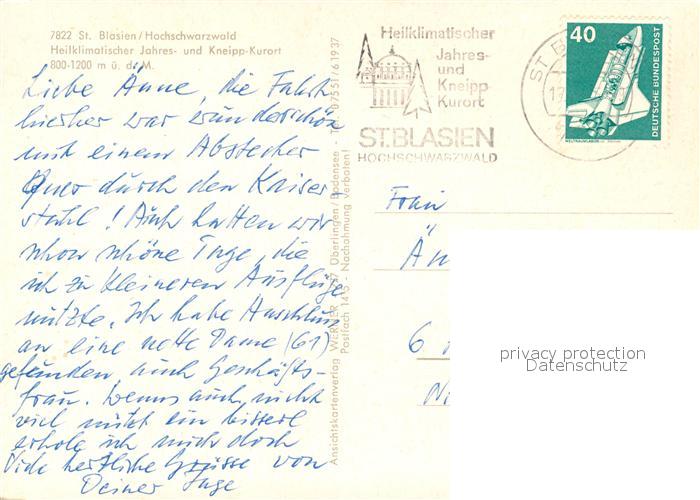 7822 St. Blasien/Hochschwarzwald
Heilklimatischer Jahres- und Kneipp-Kurort
800-1200 m ü. d. M.
Liebe Änne, die Fahrt
hierher war wunderschön
mit einem Abstecher
Quer durch den Kaiser-
stuhl! Auch hatten wir
schon schöne Tage, die
ich zu kleineren Ausflüge
nützte. Ich habe Anschluss
an eine nette Dame (61)
gefunden auch Geschäfts-
frau. Wenns auch nicht
viel nützt ein bisserl
erhole ich mich doch
Viele herzliche Grüsse von
Deiner Inge
Ansichtskartenverlag WERNER 7 Überlingen/Bodensee - Tel. 07551/61937
Postfach 1415 - Nachahmung verboten!
Heilklimatischer
Jahres-
und
Kneipp
Kurort
ST.BLASIEN
HOCHSCHWARZWALD
ST B
40
DEUTSCHE BUNDESPOST
WELTRAUMLABOR
Frau
Än
6
privacy protection
Datenschutz